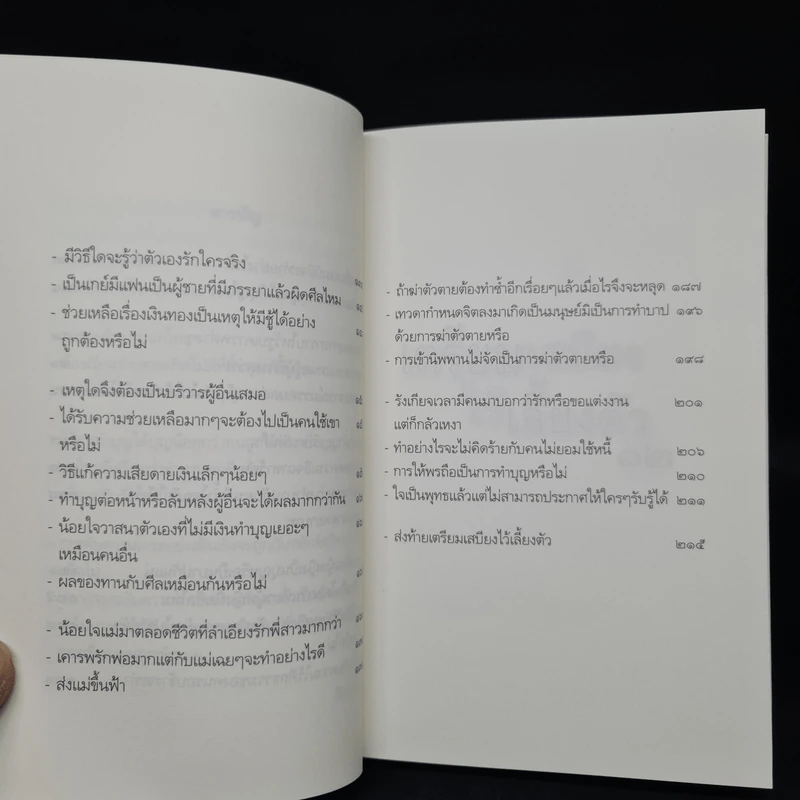 - มีวิธีใดจะรู้ว่าตัวเองรักใครจริง
- เป็นเกย์มีแฟนเป็นผู้ชายที่มีภรรยาแล้วผิดศีลไหม
- ช่วยเหลือเรื่องเงินทองเป็นเหตุให้มีชู้ได้อย่าง
ถูกต้องหรือไม่
- เหตุใดจึงต้องเป็นบริวารผู้อื่นเสมอ
- ได้รับความช่วยเหลือมากๆจะต้องไปเป็นคนใช้เขา
หรือไม่
- วิธีแก้ความเสียดายเงินเล็กๆน้อยๆ
- ทำบุญต่อหน้าหรือลับหลังผู้อื่นจะได้ผลมากกว่ากัน
- น้อยใจวาสนาตัวเองที่ไม่มีเงินทำบุญเยอะๆ
เหมือนคนอื่น
- ผลของทานกับศีลเหมือนกันหรือไม่
- น้อยใจแม่มาตลอดชีวิตที่ลำเอียงรักพี่สาวมากกว่า
- เคารพรักพ่อมากแต่กับแม่เฉยๆจะทำอย่างไรดี
- ส่งแม่ขึ้นฟ้า
- ถ้าฆ่าตัวตายต้องทำซ้ำอีกเรื่อยๆแล้วเมื่อไรจึงจะหลุด ๑๘๗
- เทวดากำหนดจิตลงมาเกิดเป็นมนุษย์มิเป็นการทำบาป ๑๙๖
ด้วยการฆ่าตัวตายหรือ
- การเข้านิพพานไม่จัดเป็นการฆ่าตัวตายหรือ ๑๙๘
- รังเกียจเวลามีคนมาบอกว่ารักหรือขอแต่งงาน ๒๐๑
แต่ก็กลัวเหงา
- ทำอย่างไรจะไม่คิดร้ายกับคนไม่ยอมใช้หนี้ ๒๐๖
- การให้พรถือเป็นการทำบุญหรือไม่ ๒๑๐
- ใจเป็นพุทธแล้วแต่ไม่สามารถประกาศให้ใครๆรับรู้ได้ ๒๑๑
- ส่งท้ายเตรียมเสบียงไว้เลี้ยงตัว ๒๑๕